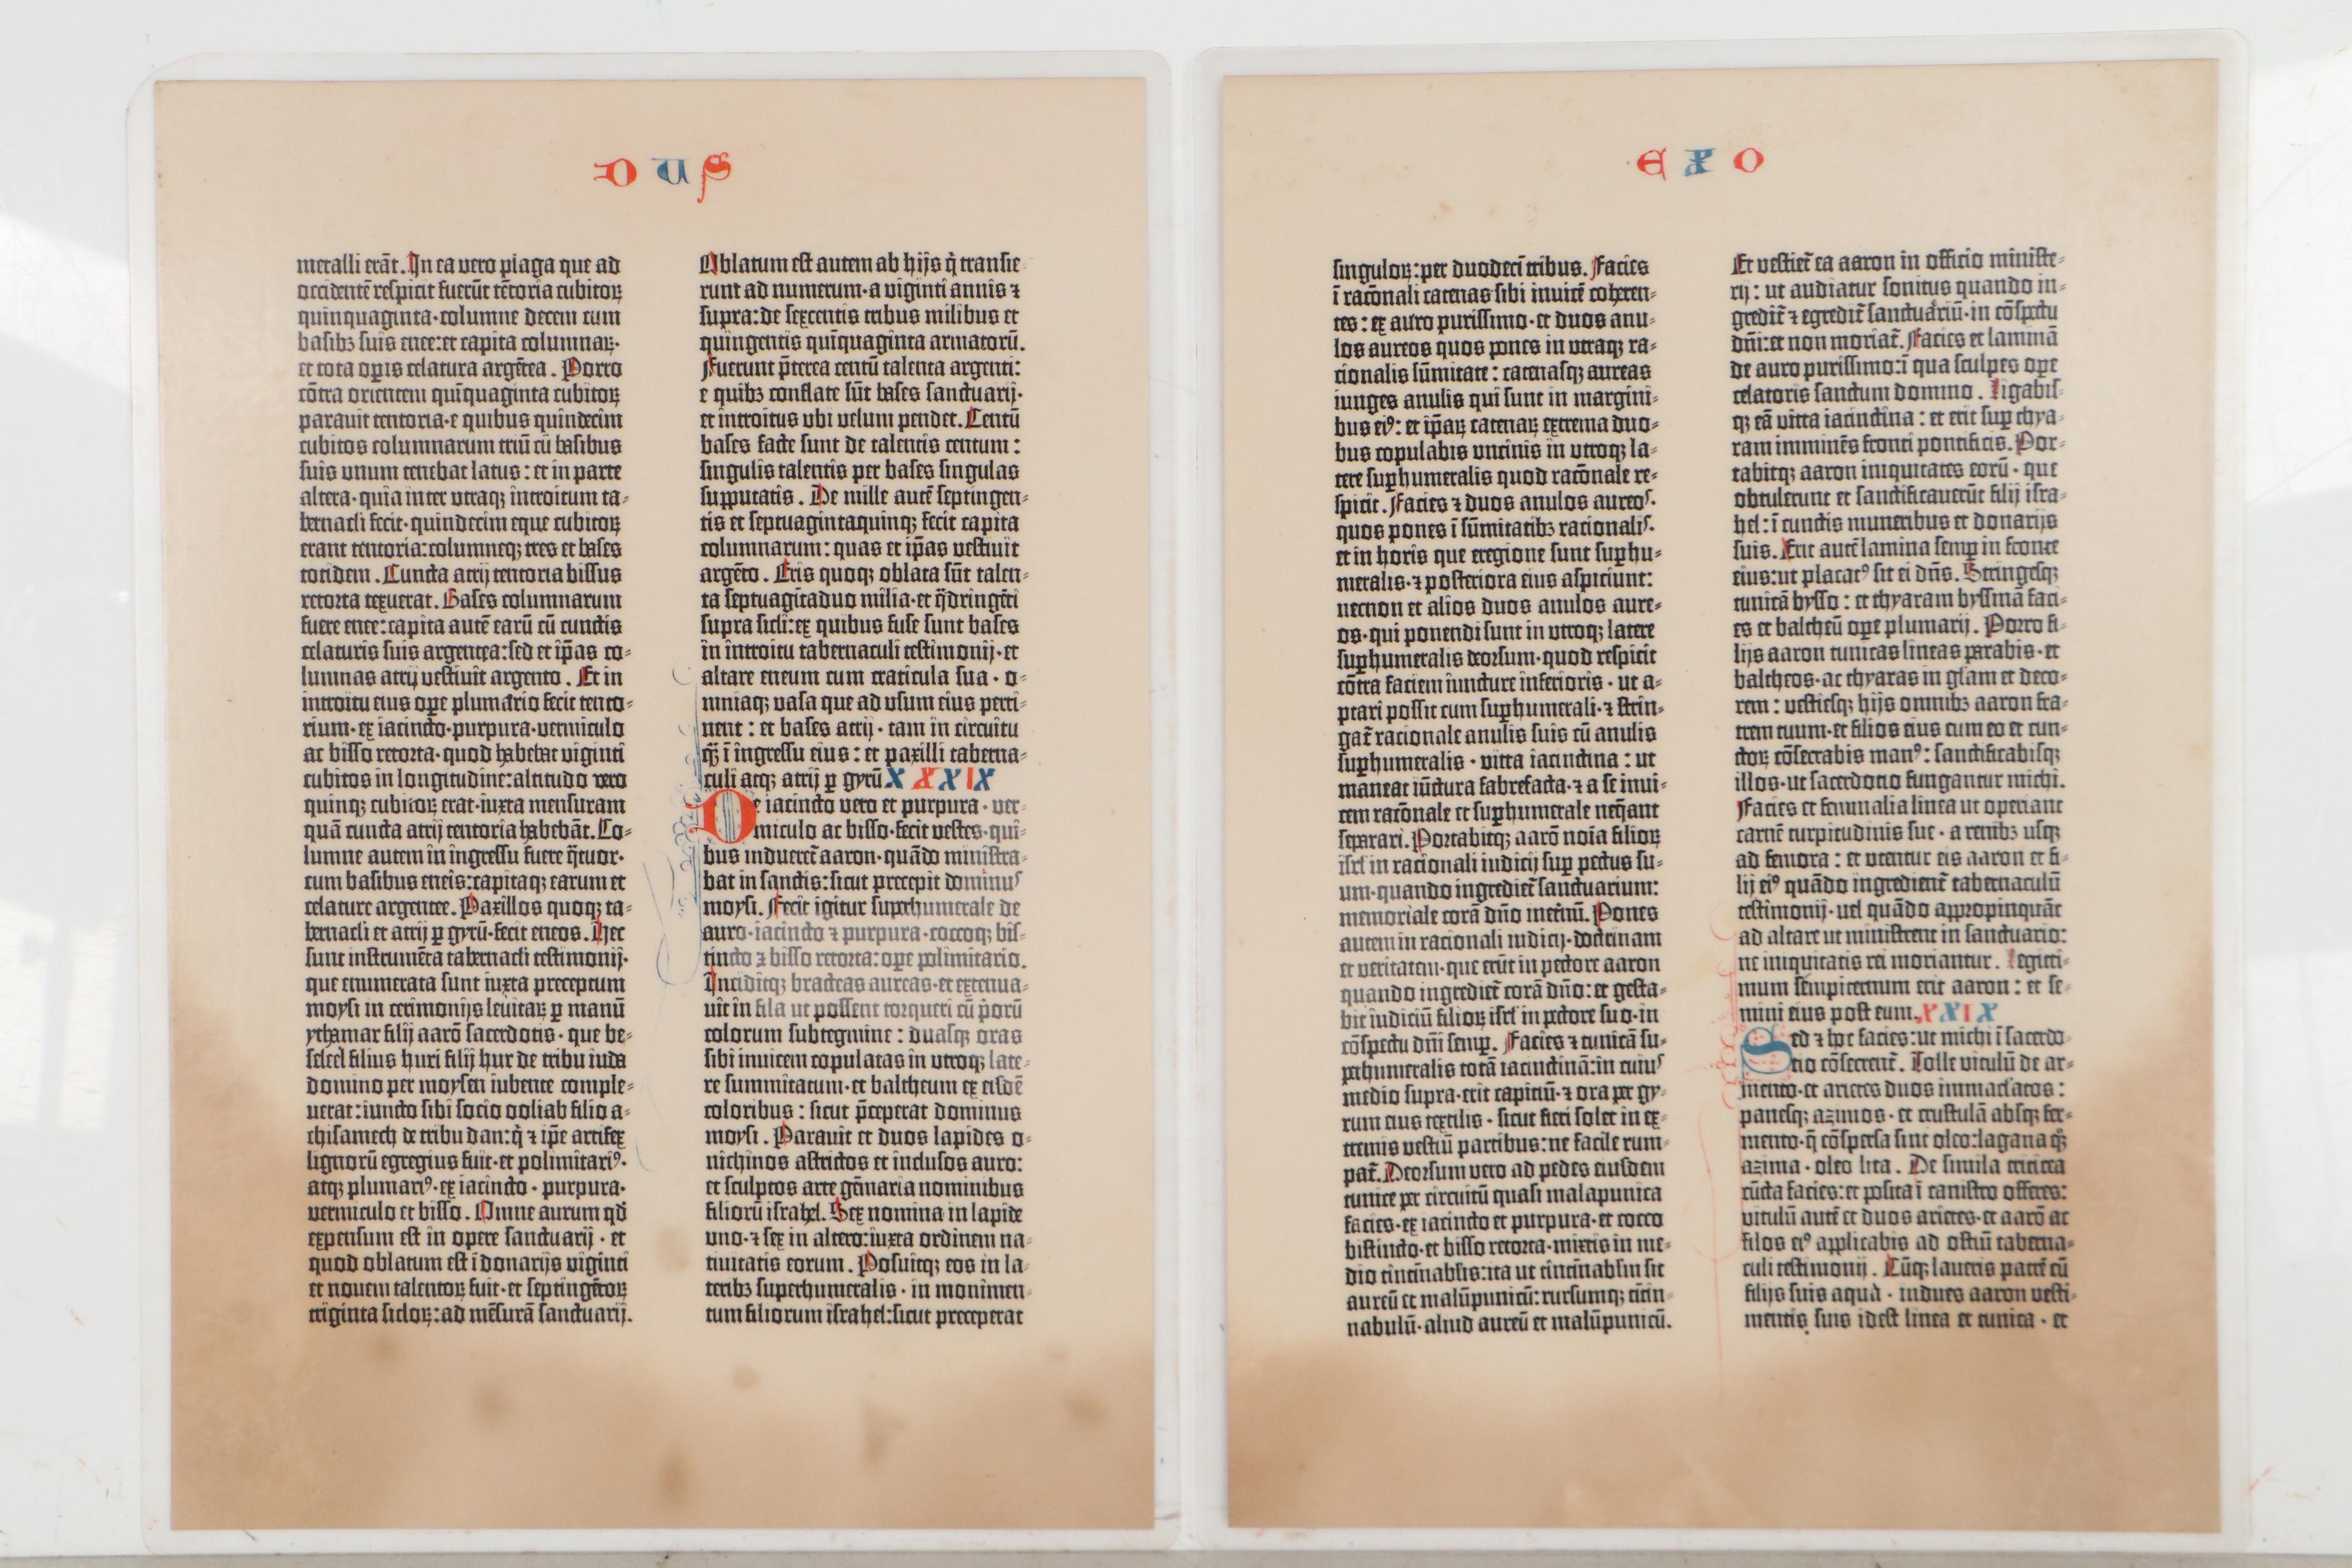 DUS
metalli erāt. In ea vero plaga que ad
occidentē respicit fuerūt tētoria cubitoꝝ
quinquaginta·columne decem cum
basibꝫ suis enee:et capita columnaꝝ·
et tota oꝑis celatura argētea. Porro
cōtra orientem quīquaginta cubitoꝝ
parauit tentoria·e quibus quindecim
cubitos columnarum triū cū basibus
suis unum tenebat latus: et in parte
altera·quia inter utraqꝫ introitum ta-
bernacli fecit·quindecim eque cubitoꝝ
erant tentoria:columneqꝫ tres et bases
totidem. Cuncta atrij tentoria bissus
retorta texuerat. Bases columnarum
fuere enee:capita autē earū cū cunctis
celaturis suis argentea:sed et ip̄as co-
lumnas atrij vestiuit argento. Et in
introitu eius oꝑe plumario fecit tento-
rium·ex iacincto·purpura·vermiculo
ac bisso retorta·quod habebat viginti
cubitos in longitudine:altitudo vero
quinqꝫ cubitoꝝ erat·iuxta mensuram
quā cuncta atrij tentoria habebāt. Co-
lumne autem in ingressu fuere q̄tuor·
cum basibus eneis:capitaqꝫ earum et
celature argentee. Paxillos quoqꝫ ta-
bernacli et atrij ꝑ gyrū·fecit eneos. Hec
sunt instrumēta tabernacli testimonij·
que enumerata sunt iuxta preceptum
moysi in cerimonijs leuitaꝝ ꝑ manū
ythamar filij aarō sacerdotis·que be-
seleel filius huri filij hur de tribu iuda
domino per moysen iubente comple-
uerat:iuncto sibi socio ooliab filio a-
chisamech de tribu dan:q̇ ⁊ ip̄e artifex
lignorū egregius fuit·et polimitariꝰ·
atqꝫ plumariꝰ·ex iacincto·purpura·
vermiculo et bisso. Omne aurum qd̄
expensum est in opere sanctuarij·et
quod oblatum est ī donarijs viginti
et novem talentoꝝ fuit·et septingētoꝝ
triginta sicloꝝ:ad mēsurā sanctuarij.
Oblatum est autem ab hijs q̇ transie-
runt ad numerum·a viginti annis ⁊
supra:de sexcentis tribus milibus et
quingentis quīquaginta armatorū.
Fuerunt p̄terea centū talenta argenti:
e quibꝫ conflate sūt bases sanctuarij·
et introitus ubi velum pendet. Centū
bases facte sunt de talentis centum:
singulis talentis per bases singulas
supputatis. De mille autē septingen-
tis et septuagintaquinqꝫ fecit capita
columnarum: quas et ip̄as vestiuit
argēto. Eris quoqꝫ oblata sūt talen-
ta septuagītaduo milia·et q̄dringēti
supra sicli:ex quibus fuse sunt bases
in introitu tabernaculi testimonij·et
altare eneum cum craticula sua·o-
mniaqꝫ vasa que ad usum eius perti-
nent: et bases atrij·tam in circuitu
q̄ꝫ ī ingressu eius: et paxilli taberna-
culi atqꝫ atrij ꝑ gyrū XXXIX
De iacincto vero et purpura·ver-
miculo ac bisso·fecit vestes·qui-
bus indueret̄ aaron·quādo ministra-
bat in sanctis:sicut precepit dominus
moysi. Fecit igitur superhumerale de
auro·iacincto ⁊ purpura·coccoqꝫ bis-
tincto ⁊ bisso retorta:oꝑe polimitario.
Inciditqꝫ bracteas aureas·et extenua-
uit in fila ut possent torqueri cū p̄orū
colorum subtegmine: duasqꝫ oras
sibi inuicem copulatas in utroqꝫ late-
re summitatum·et baltheum ex eisdē
coloribus: sicut p̄ceperat dominus
moysi. Parauit et duos lapides o-
nichinos astrictos et inclusos auro:
et sculptos arte gēmaria nominibus
filiorū israhel. Sex nomina in lapide
uno·⁊ sex in altero:iuxta ordinem na-
tiuitatis eorum. Posuitqꝫ eos in la-
teribꝫ superhumeralis·in monimen-
tum filiorum israhel:sicut preceperat
EXO
singuloꝝ:per duodecī tribus. Facies
ī racōnali catenas sibi inuicē coheren-
tes: ex auro purissimo·et duos anu-
los aureos quos pones in utraqꝫ ra-
cionalis sūmitate: catenasqꝫ aureas
iunges anulis qui sunt in margini-
bus eiꝰ: et ip̄aꝝ catenaꝝ extrema duo-
bus copulabis uncinis in utroqꝫ la-
tere suꝑhumeralis quod racōnale re-
spicit. Facies ⁊ duos anulos aureos·
quos pones ī sūmitatibꝫ racionalis·
et in horis que eregione sunt suꝑhu-
meralis·⁊ posteriora eius aspiciunt:
necnon et alios duos anulos aure-
os·qui ponendi sunt in utroqꝫ latere
suꝑhumeralis deorsum·quod respicit
cōtra faciem iuncture inferioris·ut a-
ptari possit cum suꝑhumerali·⁊ strin-
gat̄ racionale anulis suis cū anulis
suꝑhumeralis·vitta iacinctina: ut
maneat iūctura fabrefacta·⁊ a se inui-
cem racōnale et suꝑhumerale neq̄ant
separari. Portabitqꝫ aarō noīa filioꝝ
isrl̄ in racionali iudicij suꝑ pectus su-
um·quando ingrediet̄ sanctuarium:
memoriale corā dn̄o inet̄nū. Pones
autem in racionali iudicij·doctrinam
et veritatem·que erūt in pectore aaron
quando ingrediet̄ corā dn̄o: et gesta-
bit iudiciū filioꝝ isrl̄ in pectore suo·in
cōspectu dn̄i semꝑ. Facies ⁊ tunicā su-
ꝑhumeralis totā iacinctinā:in cuius
medio supra·erit capitiū·⁊ ora per gy-
rum eius textilis·sicut fieri solet in ex-
tremis vestiū partibus:ne facile rum-
pat̄. Deorsum vero ad pedes eiusdem
tunice per circuitū quasi malapunica
facies·ex iacincto et purpura·et cocco
bistincto·et bisso retorta·mixtis in me-
dio tintīnabl̄is:ita ut tintīnablm sit
aureū et malūpunicū:rursumqꝫ titin-
nabulū·aliud aureū et malūpunicū.
Et vestiet̄ ea aaron in officio ministe-
rij: ut audiatur sonitus quando in-
gredit̄ ⁊ egredit̄ sanctuariū·in cōspectu
dn̄i:et non moriat̄. Facies et laminā
de auro purissimo:ī qua sculpes oꝑe
celatoris sanctum domino. Ligabis-
qꝫ eā vitta iacinctina: et erit suꝑ thya-
ram imminēs fronti pontificis. Por-
tabitqꝫ aaron iniquitates eorū·que
obtulerunt et sanctificauerūt filij isra-
hel: ī cunctis muneribus et donarijs
suis. Erit autē lamina semꝑ in fronte
eius:ut placatꝰ sit ei dn̄s. Stringesqꝫ
tunicā bysso: et thyaram byssinā faci-
es et baltheū oꝑe plumarij. Porro fi-
lijs aaron tunicas lineas parabis·et
baltheos·ac thyaras in gl̄am et deco-
rem: vestiesqꝫ hijs omnibꝫ aaron fra-
trem tuum·et filios eius cum eo et cun-
ctoꝝ cōsecrabis manꝰ: sanctificabisqꝫ
illos·ut sacerdotio fungantur michi.
Facies et feminalia linea ut operiant
carnē turpitudinis sue·a renibꝫ usqꝫ
ad femora: et utentur eis aaron et fi-
lij eiꝰ quādo ingredient̄ tabernaculū
testimonij·uel quādo appropinquāt
ad altare ut ministrent in sanctuario:
ne iniquitatis rei moriantur. Legiti-
mum sempiternum erit aaron: et se-
mini eius post eum. XXIX
Sed ⁊ hoc facies:ut michi ī sacerdo-
tio cōsecrent̄. Tolle vitulū de ar-
mento·et arietes duos immaculatos:
panesqꝫ azimos·et crustulā absqꝫ fer-
mento·q̄ cōspersa sint oleo:lagana qꝫ
azima·oleo lita. De simila triticea
cūcta facies:et posita ī canistro offeres:
vitulū autē et duos arietes·et aarō ac
filos eiꝰ applicabis ad ostiū taberna-
culi testimonij. Cūqꝫ laueris patrē cū
filijs suis aqua·indues aaron vesti-
mentis suis idest linea et tunica·et